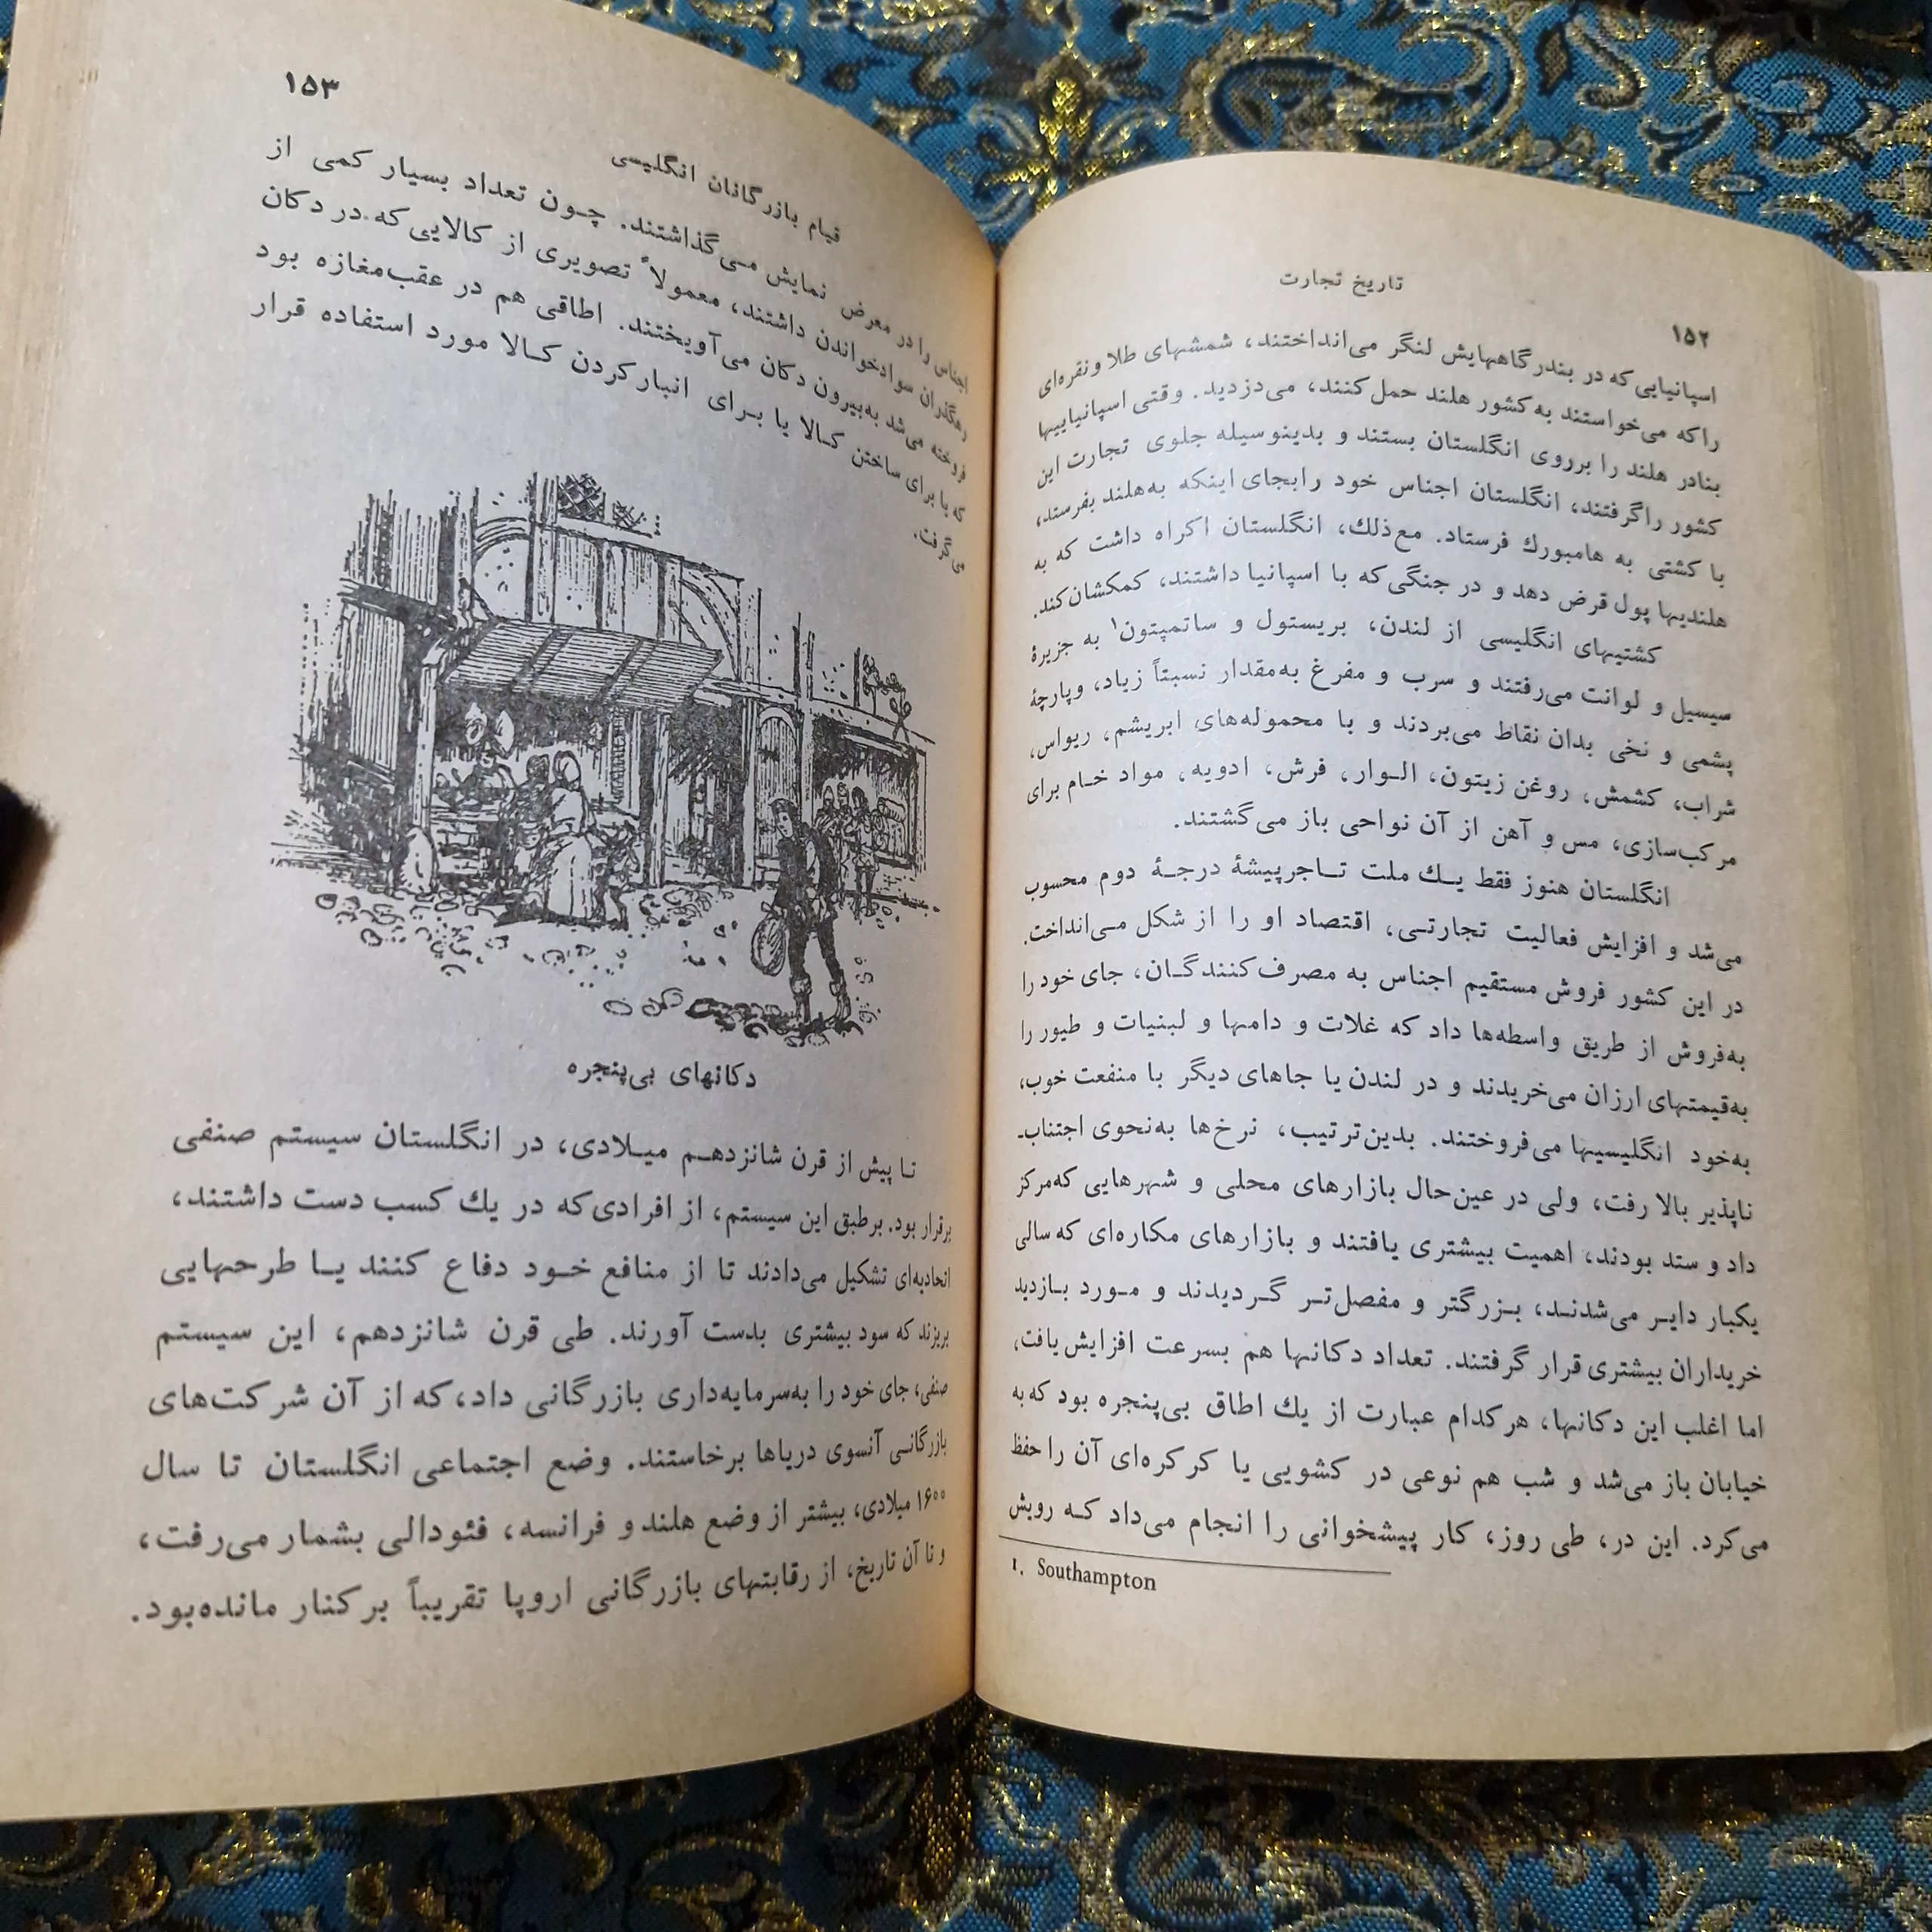 ۱۵۲
تاریخ تجارت
اسپانیایی که در بندرگاههایش لنگر می‌انداختند، شمشهای طلا و نقره‌ای
را که می‌خواستند به کشور هلند حمل کنند، می‌دزدید. وقتی اسپانیاییها
بنادر هلند را برروی انگلستان بستند و بدینوسیله جلوی تجارت این
کشور را گرفتند، انگلستان اجناس خود را بجای اینکه به‌هلند بفرستد،
با کشتی به هامبورك فرستاد. مع‌ذلك، انگلستان اکراه داشت که به
هلندیها پول قرض دهد و در جنگی که با اسپانیا داشتند، کمکشان کند.
کشتیهای انگلیسی از لندن، بریستول و ساتمپتون۱ به جزیرهٔ
سیسیل و لوانت می‌رفتند و سرب و مفرغ به‌مقدار نسبتاً زیاد، و پارچهٔ
پشمی و نخی بدان نقاط می‌بردند و با محموله‌های ابریشم، ریواس،
شراب، کشمش، روغن زیتون، الـوار، فرش، ادویه، مواد خـام برای
مرکب‌سازی، مس و آهن از آن نواحی باز می‌گشتند.
انگلستان هنوز فقط یـك ملت تـاجرپیشهٔ درجـهٔ دوم محسوب
می‌شد و افزایش فعالیت تجارتـی، اقتصاد او را از شکل مـی‌انداخت.
در این کشور فروش مستقیم اجناس به مصرف‌کنندگـان، جای خود را
به‌فروش از طریق واسطه‌ها داد که غلات و دامها و لبنیات و طیور را
به‌قیمتهای ارزان می‌خریدند و در لندن یا جاهای دیگر با منفعت خوب،
به‌خود انگلیسیها می‌فروختند. بدین‌ترتیب، نرخ‌ها به‌نحوی اجتناب‌ـ
ناپذیر بالا رفت، ولی در عین‌حال بازارهای محلی و شهرهایی که‌مرکز
داد و ستد بودند، اهمیت بیشتری یافتند و بازارهای مکاره‌ای که سالی
یکبار دایـر می‌شدنـد، بـزرگتر و مفصل‌تـر گـردیدند و مـورد بـازدید
خریداران بیشتری قرار گرفتند. تعداد دکانها هم بسرعت افزایش یافت،
اما اغلب این دکانها، هرکدام عبارت از یك اطاق بی‌پنجره بود که به
خیابان باز می‌شد و شب هم نوعی در کشویی یا کرکره‌ای آن را حفظ
می‌کرد. این در، طی روز، کار پیشخوانی را انجام می‌داد کـه رویش
۱. Southampton
۱۵۳
قیام بازرگانان انگلیسی
اجناس را در معرض نمایش مـی‌گذاشتند. چـون تعداد بسیار کمی از
رهگذران سواد‌خواندن داشتند، معمولاً تصویری از کالایی که در دکان
فروخته می‌شد به‌بیرون دکان می‌آویختند. اطاقی هم در عقب‌مغازه بود
که یا برای ساختن کـالا یا بـرای انبارکردن کـالا مورد استفاده قرار
می‌گرفت.
دکانهای بی‌پنجره
تـا پیش از قرن شانزدهـم میـلادی، در انگلستان سیستم صنفی
برقرار بود. برطبق این سیستم، از افرادی‌که در یك کسب دست داشتند،
اتحادیه‌ای تشکیل می‌دادند تا از منافع خـود دفاع کنند یـا طرحهایی
بریزند که سود بیشتری بدست آورند. طی قرن شانزدهم، این سیستم
صنفی، جای خود را به‌سرمایه‌داری بازرگانی داد، که از آن شرکت‌های
بازرگانـی آنسوی دریاها برخاستند. وضع اجتماعی انگلستان تا سال
۱۶۰۰ میلادی، بیشتر از وضع هلند و فرانسه، فئودالی بشمار می‌رفت،
و تا آن تاریخ، از رقابتهای بازرگانی اروپا تقریباً برکنار مانده‌بود.